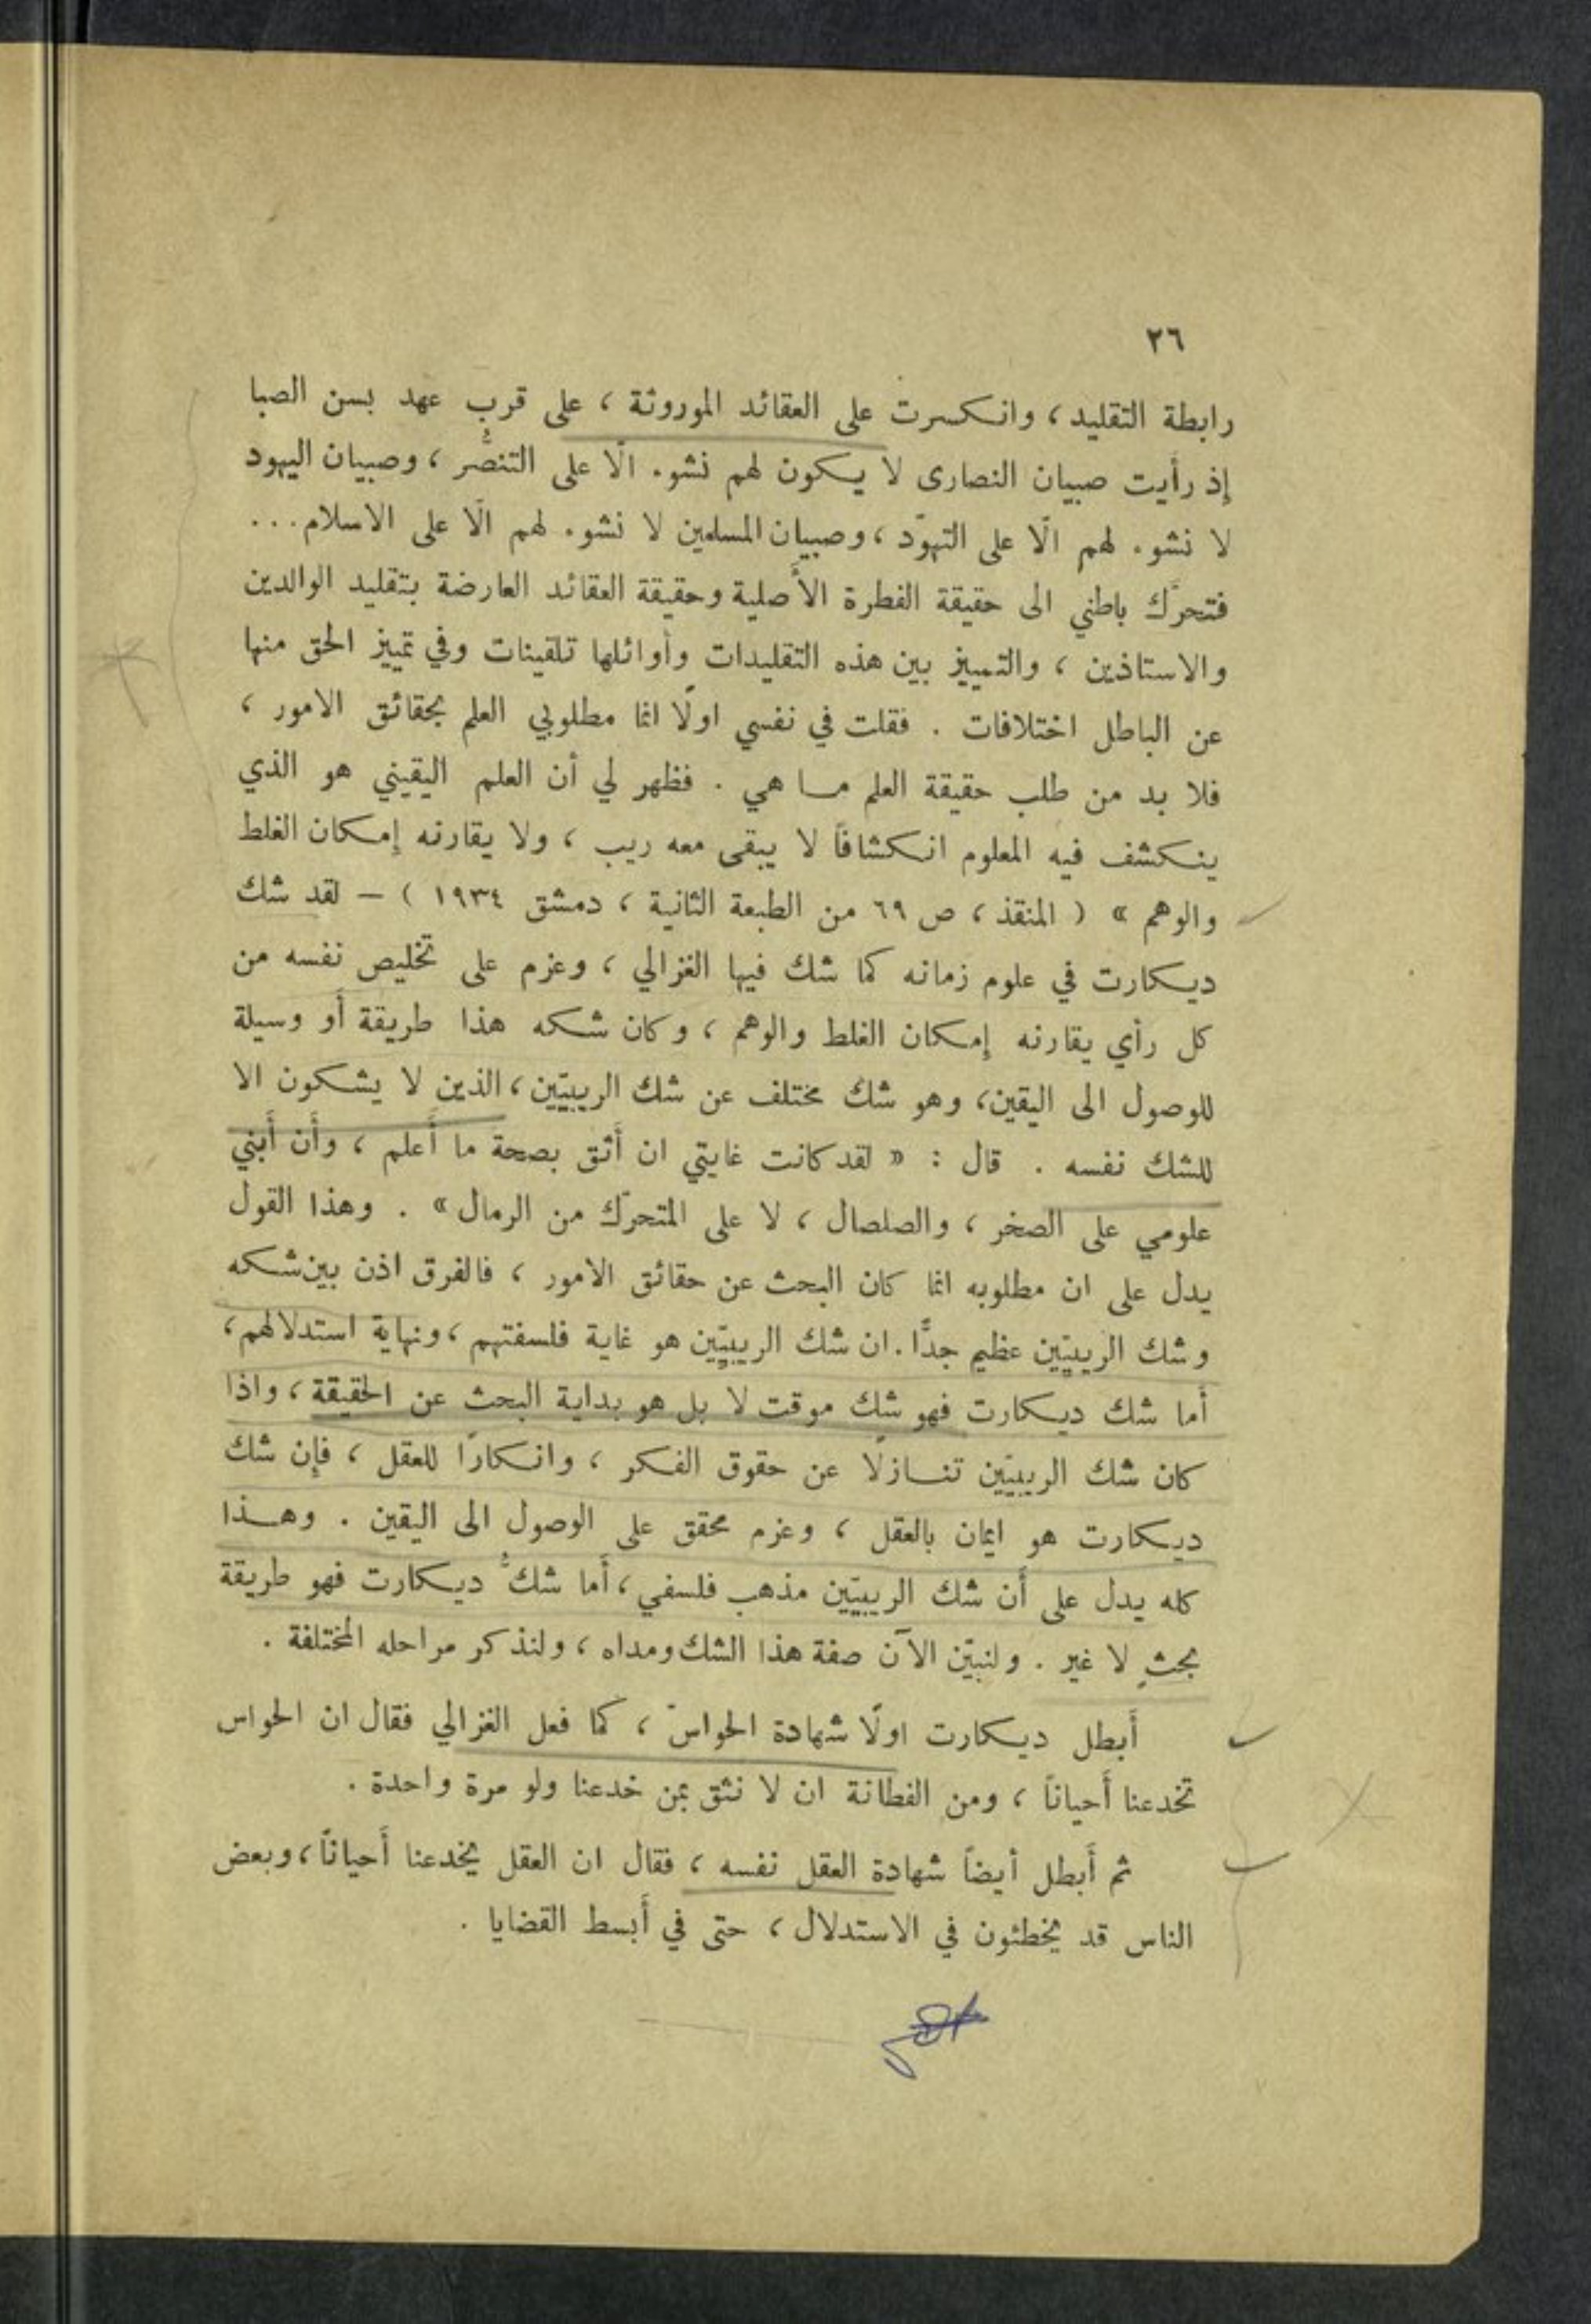 ٢٦
رابطة التقليد، وانكسرت على العقائد الموروثة، على قرب عهد بسن الصبا
إذ رأيت صبيان النصارى لا يكون لهم نشوء الّا على التنصُّر، وصبيان اليهود
لا نشوء لهم الّا على التهوّد، وصبيان المسلمين لا نشوء لهم الّا على الاسلام...
فتحرّك باطني الى حقيقة الفطرة الأصلية وحقيقة العقائد العارضة بتقليد الوالدين
والاستاذين، والتمييز بين هذه التقليدات وأوائلها تلقينات وفي تمييز الحق منها
عن الباطل اختلافات. فقلت في نفسي اولًا انما مطلوبي العلم بحقائق الامور،
فلا بد من طلب حقيقة العلم ما هي. فظهر لي أن العلم اليقيني هو الذي
ينكشف فيه المعلوم انكشافاً لا يبقى معه ريب، ولا يقارنه إمكان الغلط
والوهم » ( المنقذ، ص ٦٩ من الطبعة الثانية، دمشق ١٩٣٤ ) – لقد شك
ديكارت في علوم زمانه كما شك فيها الغزالي، وعزم على تخليص نفسه من
كل رأي يقارنه إمكان الغلط والوهم، وكان شكه هذا طريقة أو وسيلة
للوصول الى اليقين، وهو شك مختلف عن شك الريبيّين، الذين لا يشكون الا
للشك نفسه. قال: « لقد كانت غايتي ان أثق بصحة ما أعلم، وأن أبني
علومي على الصخر، والصلصال، لا على المتحرّك من الرمال ». وهذا القول
يدل على ان مطلوبه انما كان البحث عن حقائق الامور، فالفرق اذن بين شكه
وشك الريبيّين عظيم جدًّا. ان شك الريبيّين هو غاية فلسفتهم، ونهاية استدلالهم،
أما شك ديكارت فهو شك موقت لا بل هو بداية البحث عن الحقيقة، واذا
كان شك الريبيّين تنازلًا عن حقوق الفكر، وانكارًا للعقل، فإن شك
ديكارت هو ايمان بالعقل، وعزم محقق على الوصول الى اليقين. وهذا
كله يدل على أن شك الريبيّين مذهب فلسفي، أما شكُّ ديكارت فهو طريقة
بحثٍ لا غير. ولنبيّن الآن صفة هذا الشك ومداه، ولنذكر مراحله المختلفة.
أبطل ديكارت اولًا شهادة الحواسّ، كما فعل الغزالي فقال ان الحواس
تخدعنا أحياناً، ومن الفطانة ان لا نثق بمن خدعنا ولو مرة واحدة.
ثم أبطل أيضاً شهادة العقل نفسه، فقال ان العقل يخدعنا أحياناً، وبعض
الناس قد يخطئون في الاستدلال، حتى في أبسط القضايا.